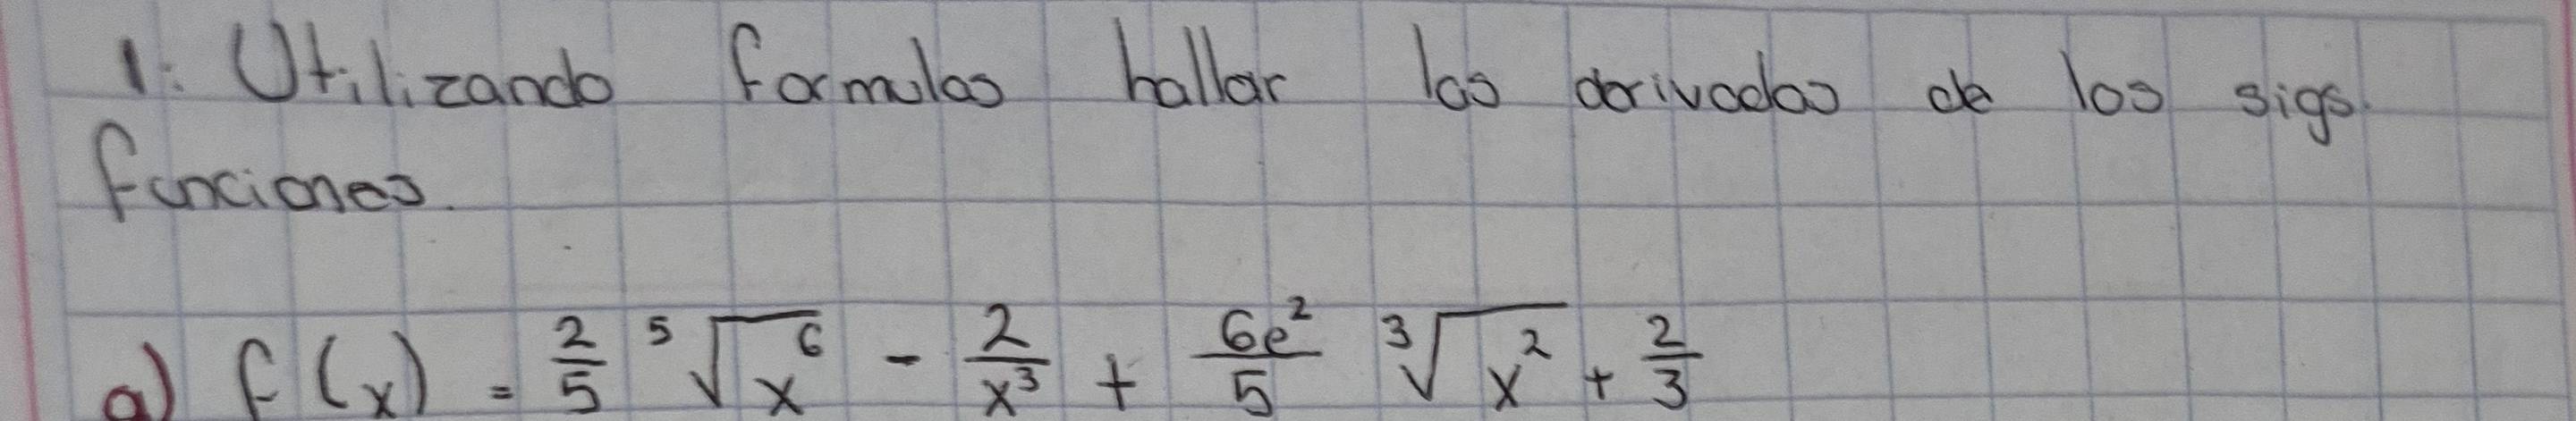 1: Utilizando formulas hallar las derivadas de las sigs.
funciones.
a) f(x) = 2/5 ⁵√x⁶ - 2/x³ + 6e²/5 ³√x² + 2/3